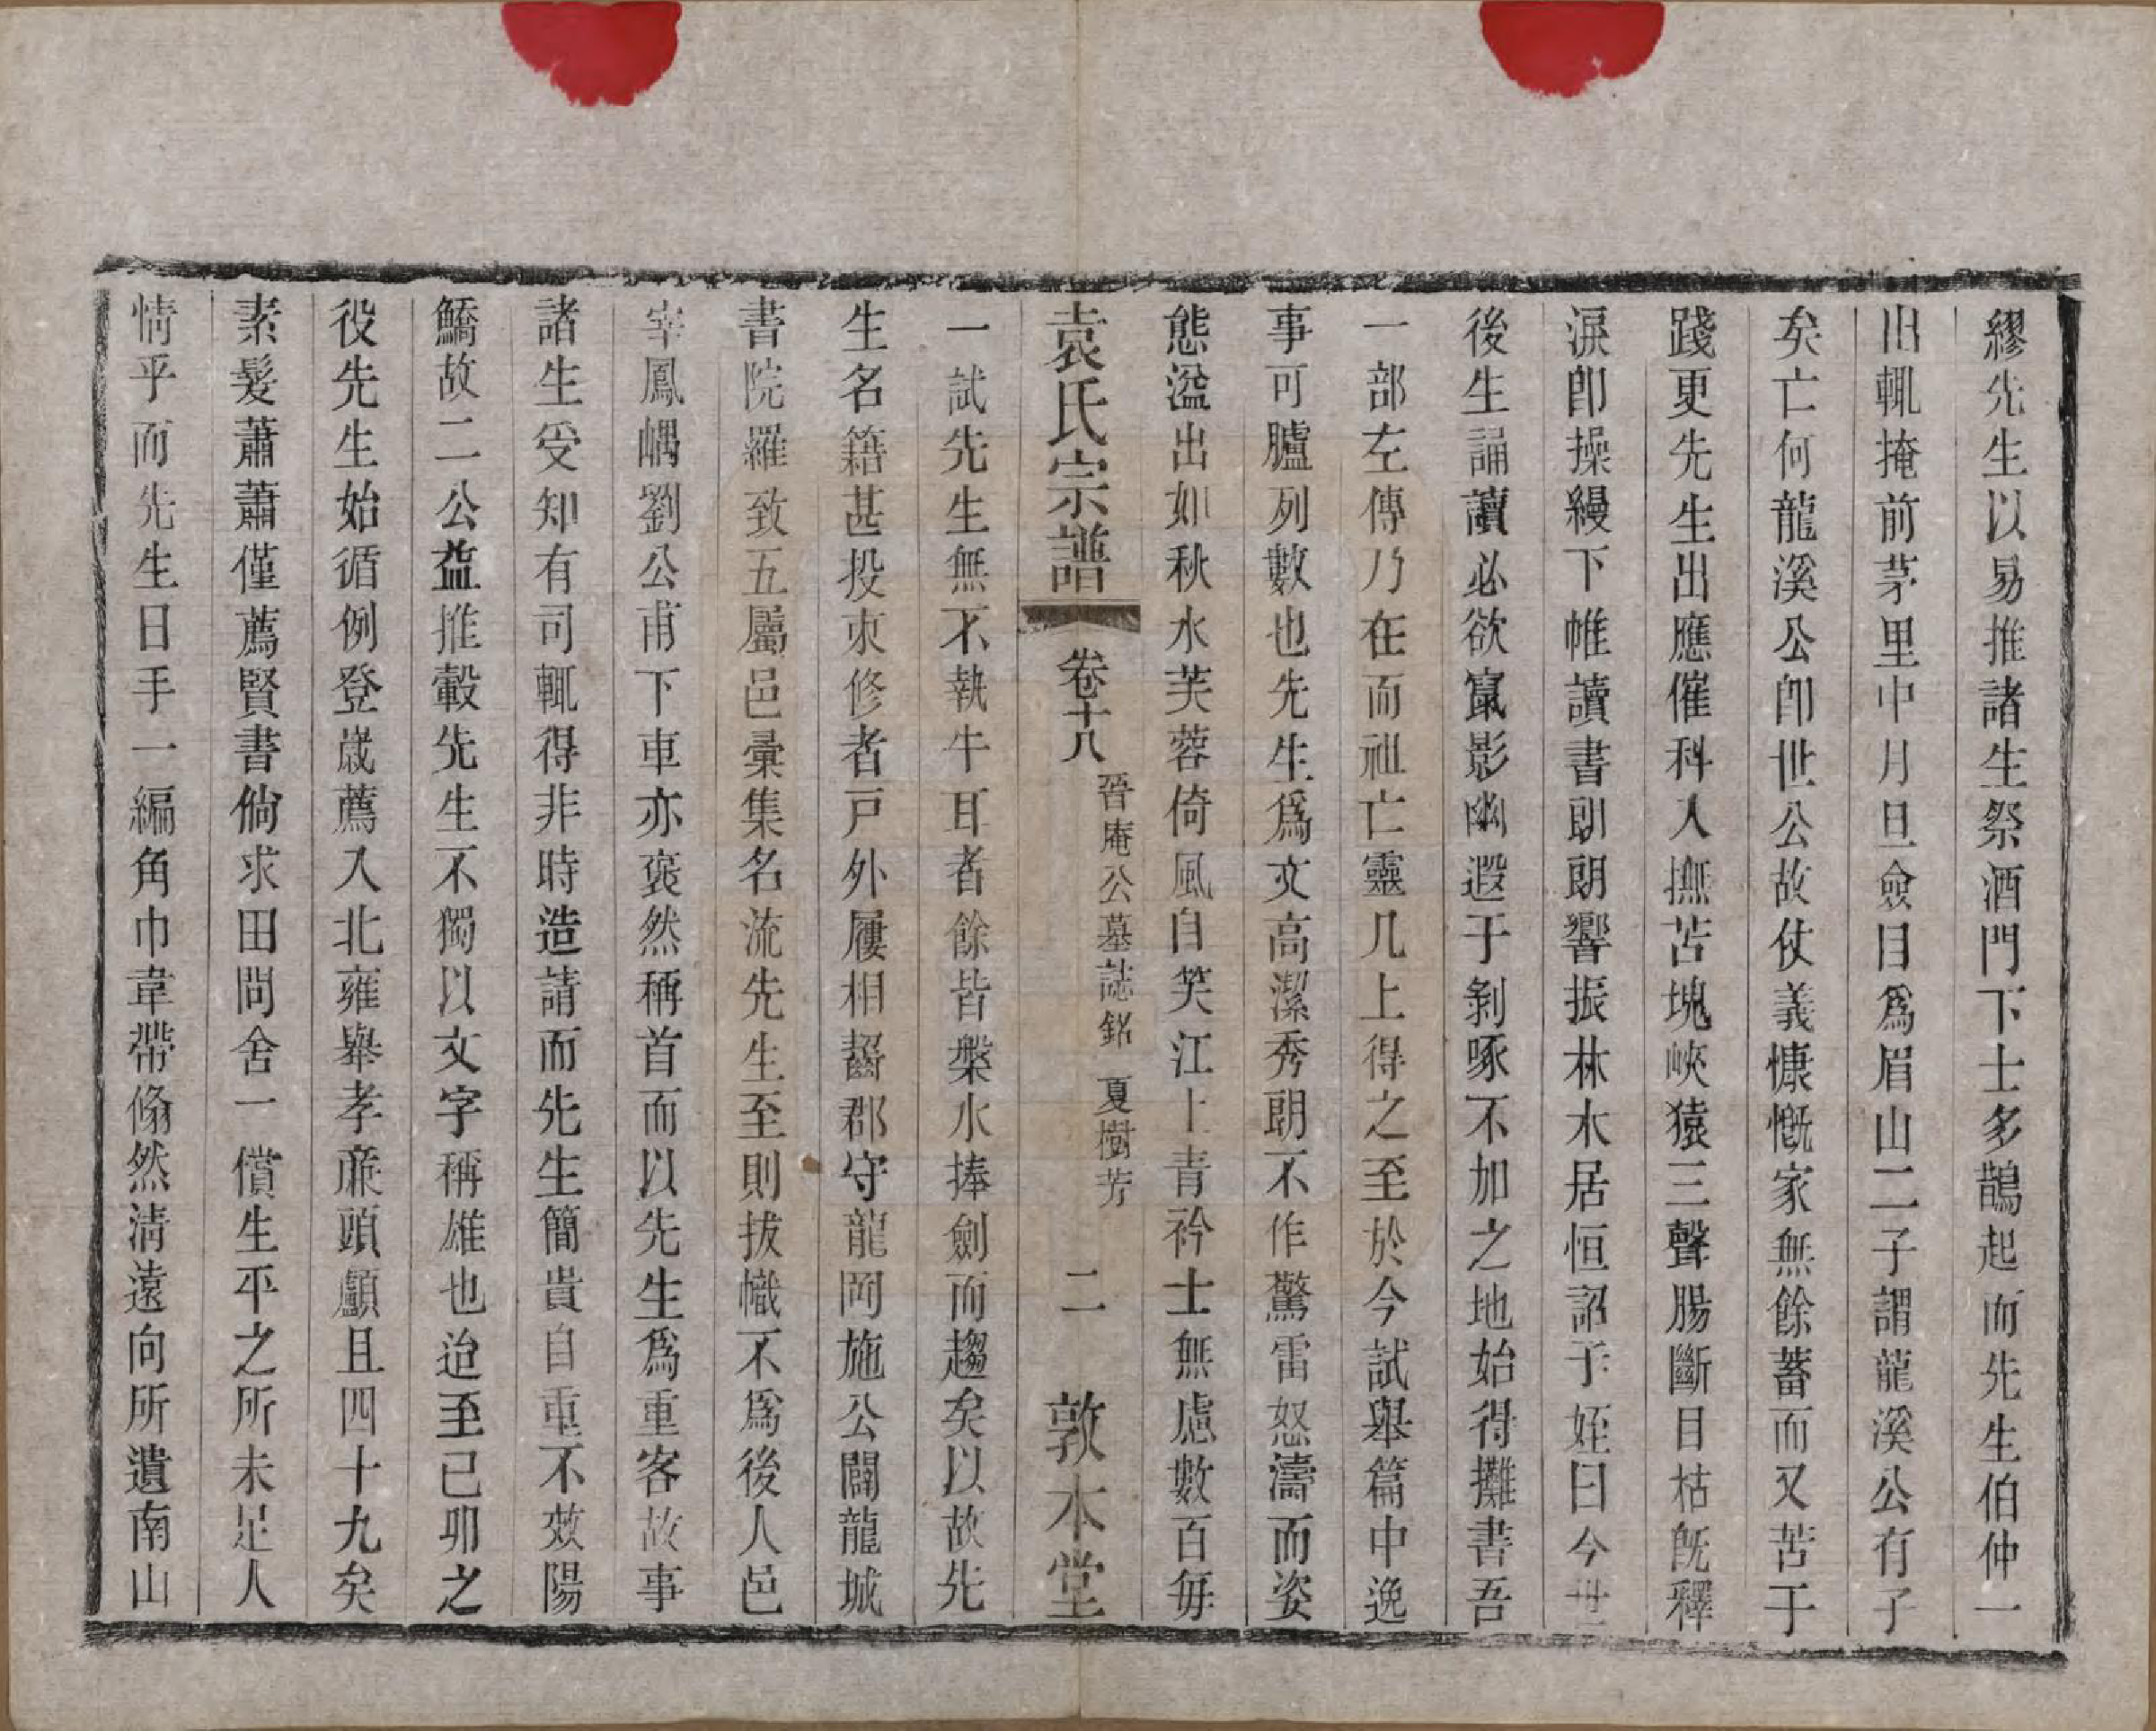 繆先生以易推諸生祭酒門下士多鵲起而先生伯仲一
出輒掩前茅里中月旦僉目爲眉山二子謂龍溪公有子
矣亡何龍溪公卽世公故仗義慷慨家無餘蓄而又苦于
踐更先生出應催科入撫苫塊峽猿三聲腸斷目枯旣釋
淚卽操縵下帷讀書朗朗響振林木居恒詔子姪曰今世
後生誦讀必欲竄影幽遐于剝啄不加之地始得攤書吾
一部左傳乃在而祖亡靈几上得之至於今試舉篇中逸
事可臚列數也先生爲文高潔秀朗不作驚雷怒濤而姿
態溢出如秋水芙蓉倚風自笑江上青衿士無慮數百每
袁氏宗譜 卷十八 晉庵公墓誌銘 夏樹芳 二 敦本堂
一試先生無不執牛耳者餘皆槃水捧劍而趨矣以故先
生名籍甚投束修者戸外屨相齧郡守龍岡施公闢龍城
書院羅致五屬邑彙集名流先生至則拔幟不爲後人邑
宰鳳嵎劉公甫下車亦褎然稱首而以先生爲重客故事
諸生受知有司輒得非時造請而先生簡貴自重不效陽
鱎故二公益推轂先生不獨以文字稱雄也迨至己卯之
役先生始循例登歲薦入北雍舉孝亷頭顱且四十九矣
素髮蕭蕭僅薦賢書倘求田問舍一償生平之所未足人
情乎而先生日手一編角巾韋帶翛然淸遠向所遺南山